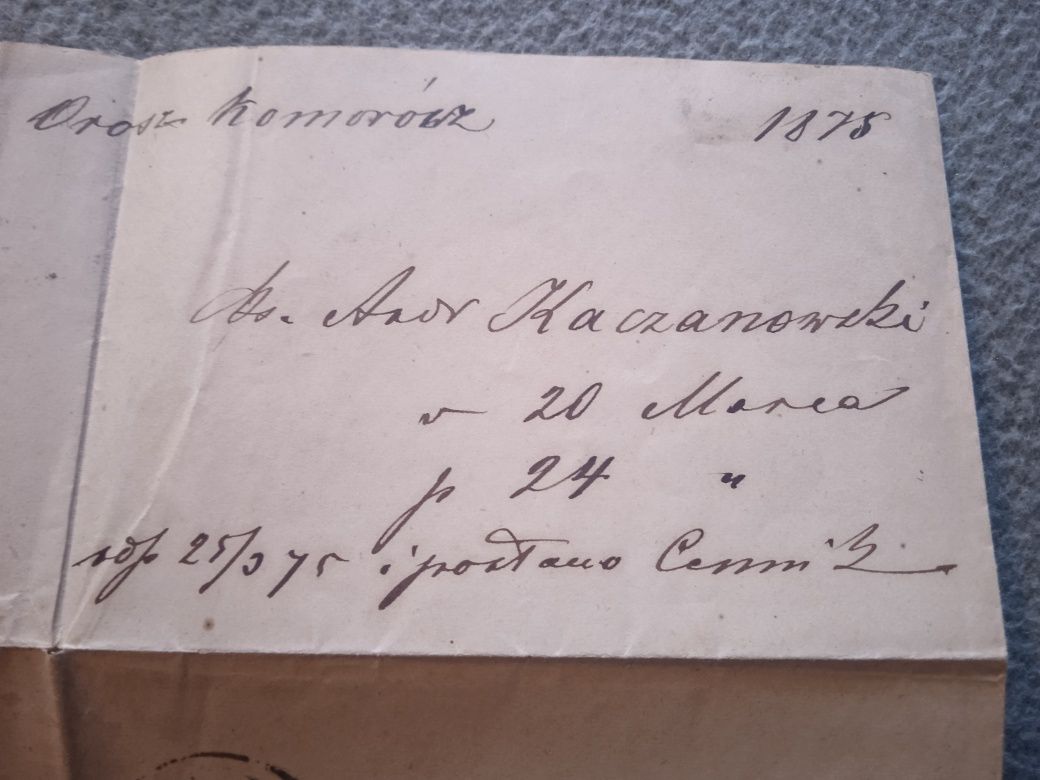 Orosz Komorócz 1875
Ks. Andr Kaczanowski
v 20 Marca
p 24 "
odp 25/3 75 i posłano Cennik